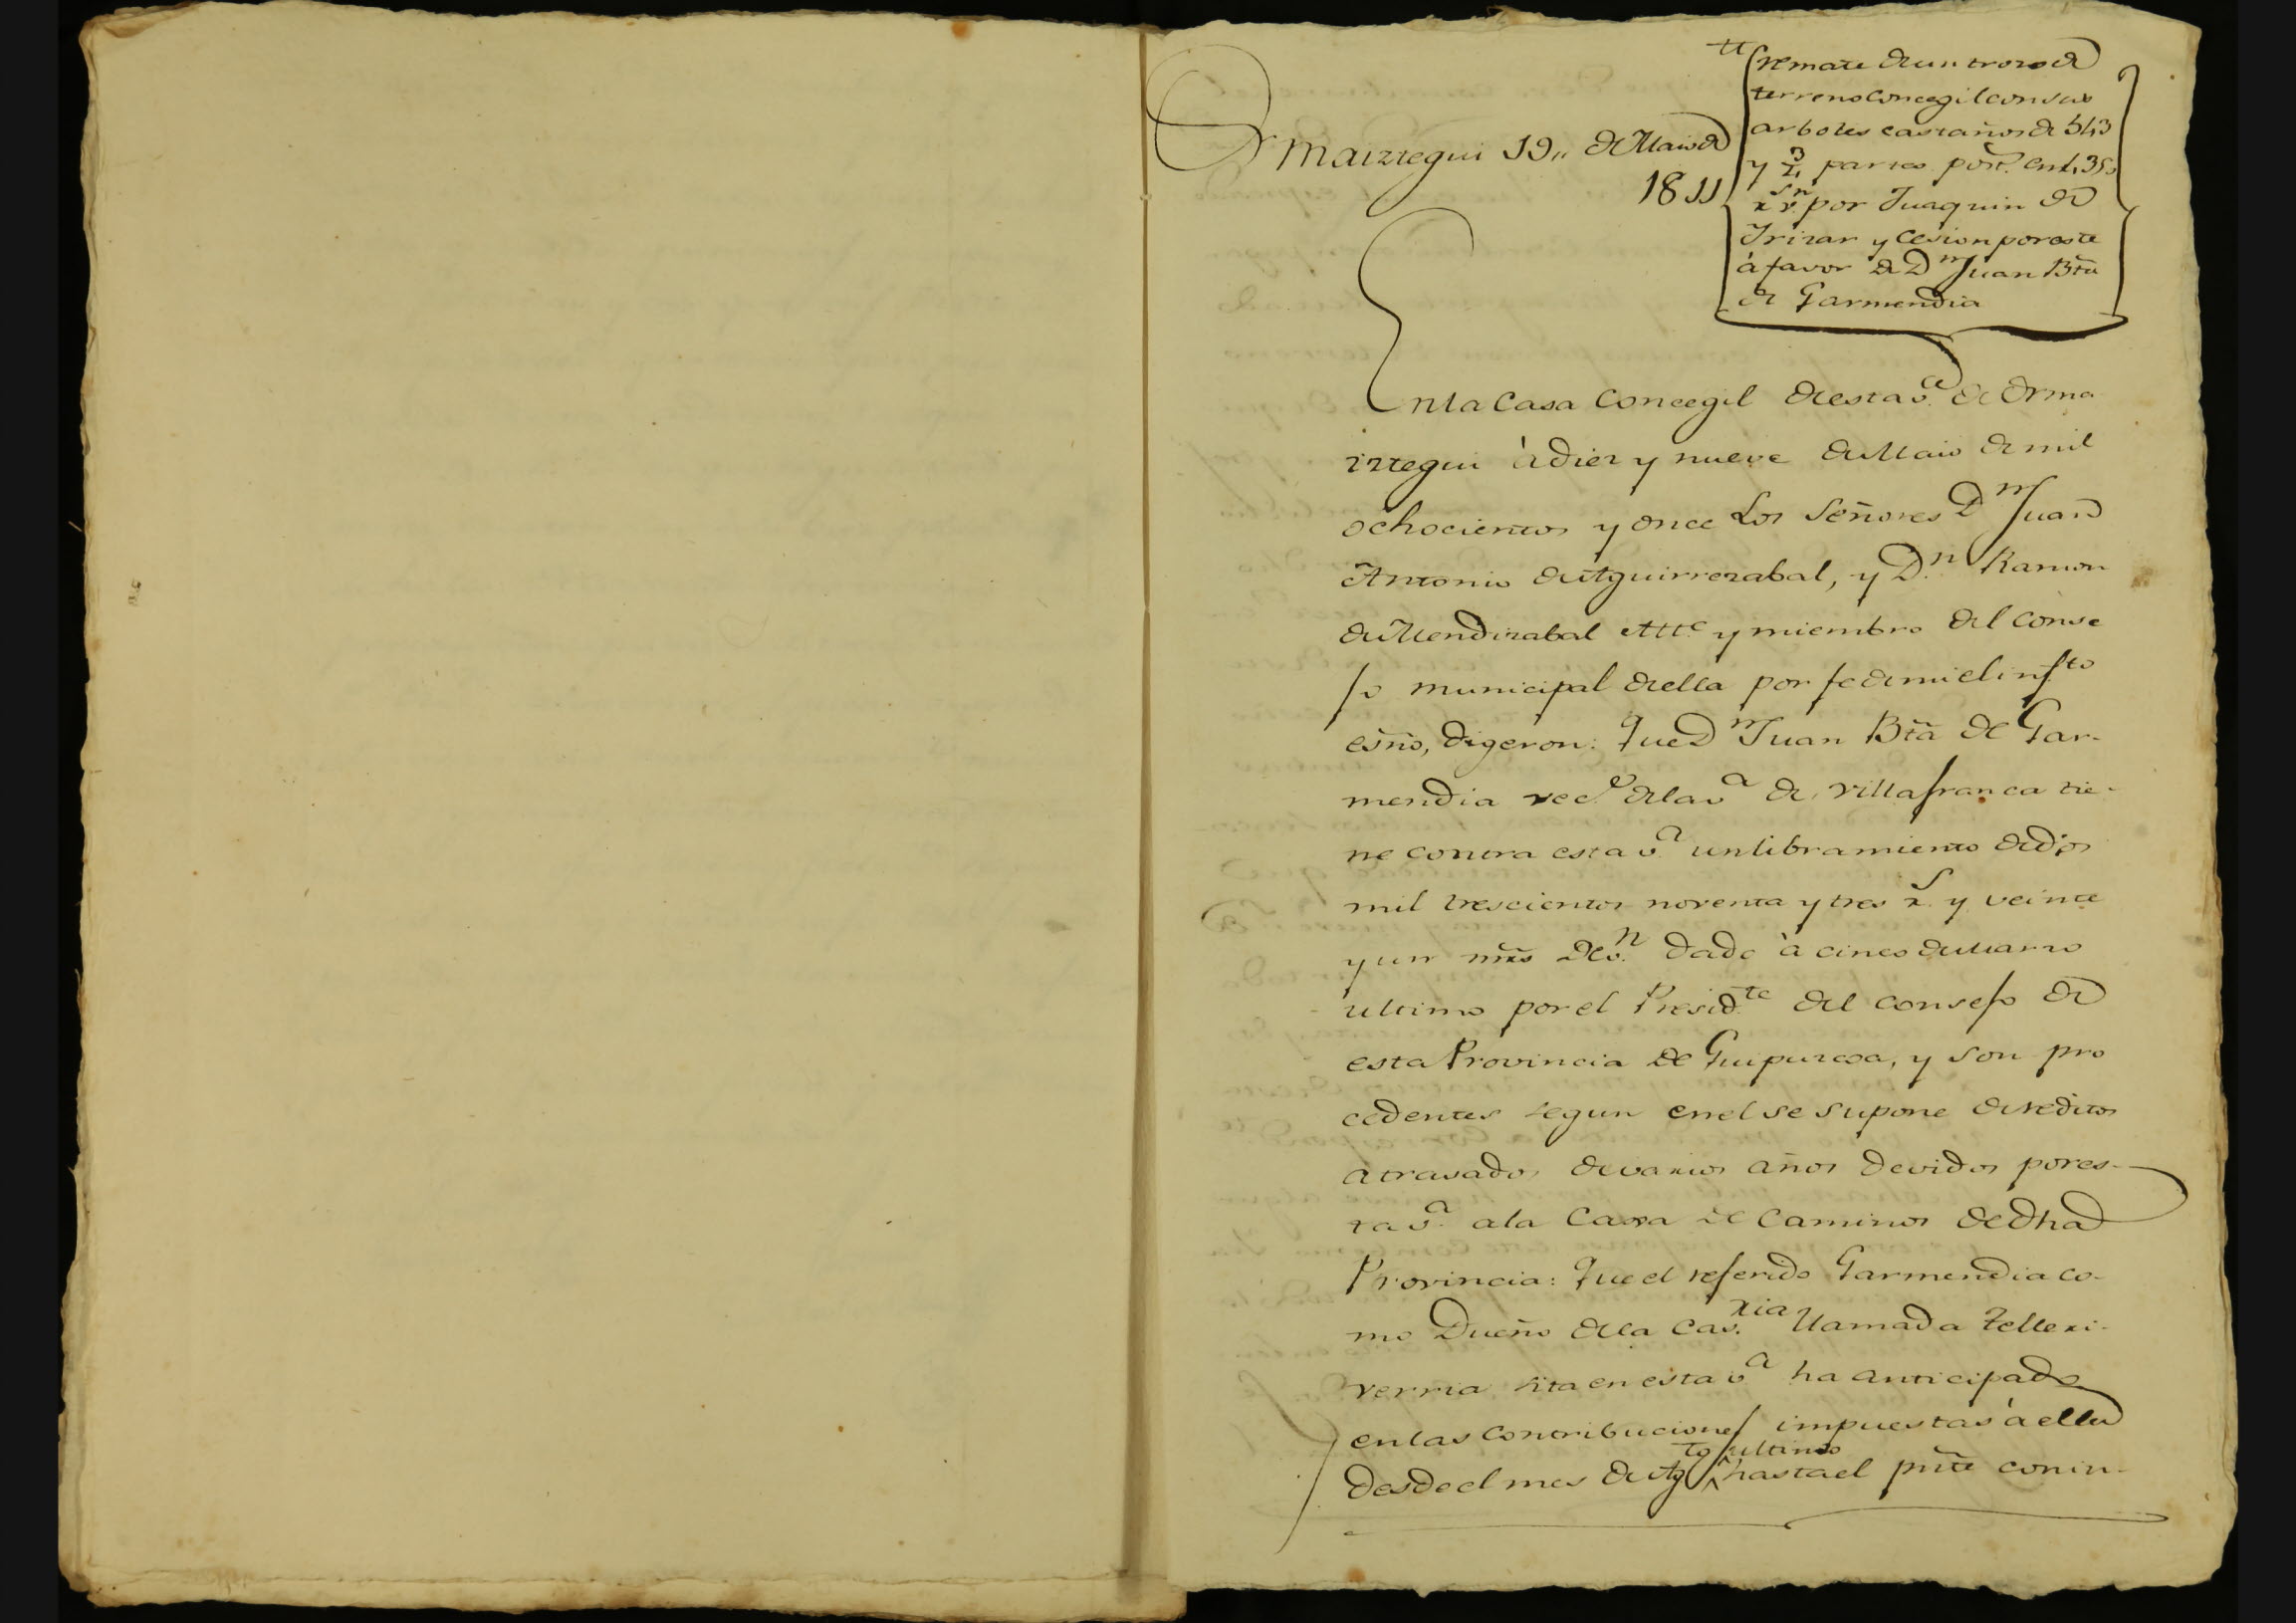 Ormaiztegui 19,, de Maio de
1811
remate de un trozo de
terreno Concegil con sus
arboles castaños de 543
y 3/4 partes post.s en 1,350
r.s v.n por Juaquin de
Irizar y Cesion por este
à favor de D.n Juan Bta
de Garmendia
En la Casa Concegil de esta v.a de Orma
iztegui à diez y nueve de Maio de mil
ochocientos y once Los Señores D.n Juan
Antonio de Aguirrezabal, y D.n Ramon
de Mendizabal Alc.e y miembro del Conse
jo municipal de ella por fe de mi el infto
esno, digeron: Que D.n Juan Bta de Gar-
mendia vec.o de la v.a de Villafranca tie-
ne contra esta v.a un libramiento de dos
mil trescientos noventa y tres r.s y veinte
y un mrs de v.n dado à cinco de Marzo
ultimo por el Presid.te del consejo de
esta Provincia de Guipuzcoa, y son pro
cedentes segun en el se supone de reditos
atrasados de varios años devidos por es-
ta v.a a la Caxa de Caminos de dha
Provincia: Que el referido Garmendia co-
mo Dueño de la Cas.ria llamada Telleri-
verria sita en esta v.a ha anticipado
en las Contribuciones impuestas à ella
desde el mes de Ag.to ultimo hasta el pnte con in-